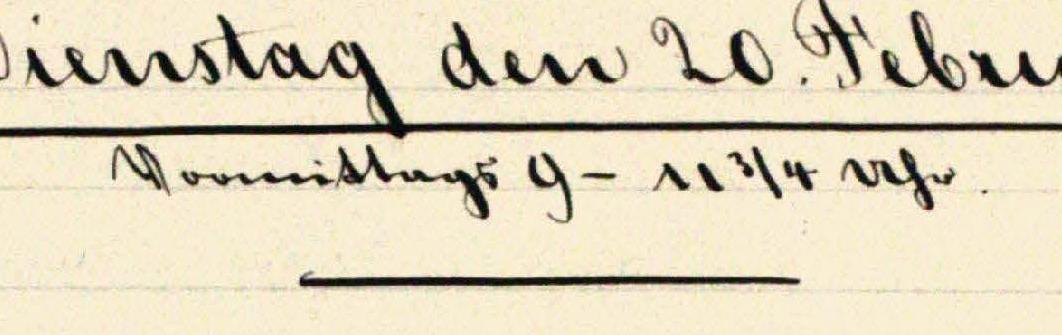 Dienstag den 20. Febru
Vormittags 9 - 11 3/4 Uhr.